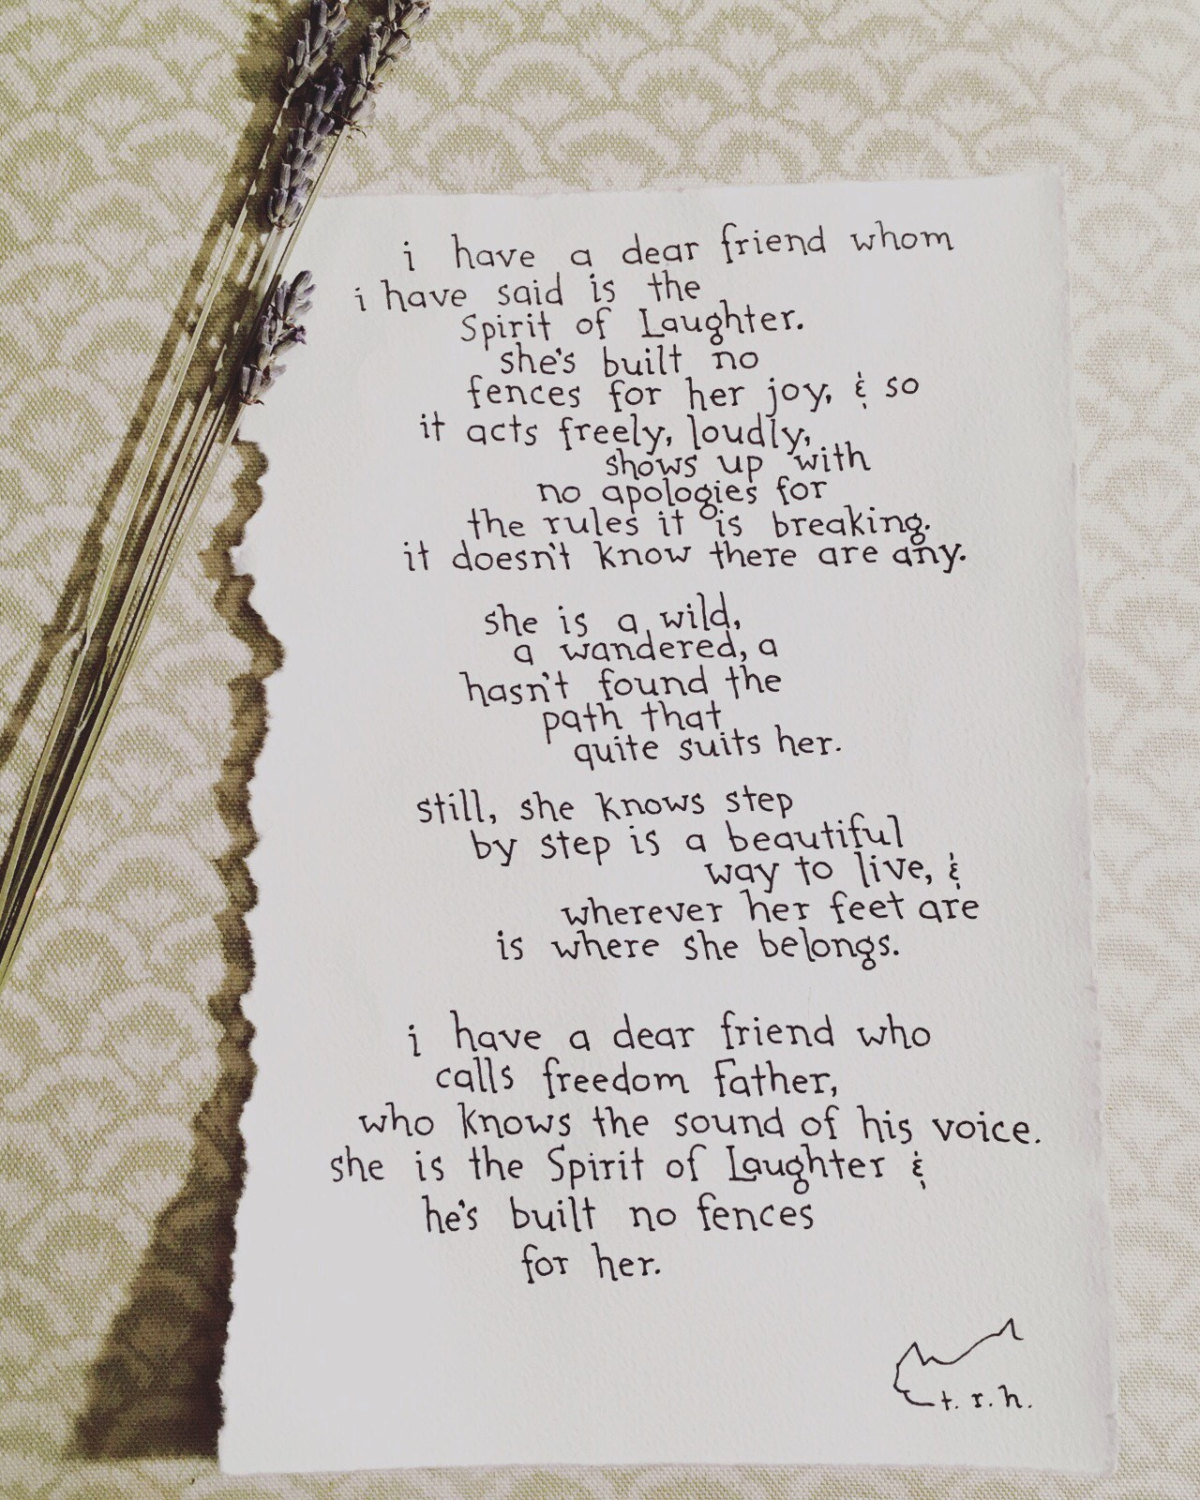 i have a dear friend whom
i have said is the
Spirit of Laughter.
she's built no
fences for her joy, & so
it acts freely, loudly,
shows up with
no apologies for
the rules it is breaking.
it doesn't know there are any.
she is a wild,
a wandered, a
hasn't found the
path that
quite suits her.
still, she knows step
by step is a beautiful
way to live, &
wherever her feet are
is where she belongs.
i have a dear friend who
calls freedom father,
who knows the sound of his voice.
she is the Spirit of Laughter &
he's built no fences
for her.
t. r. h.